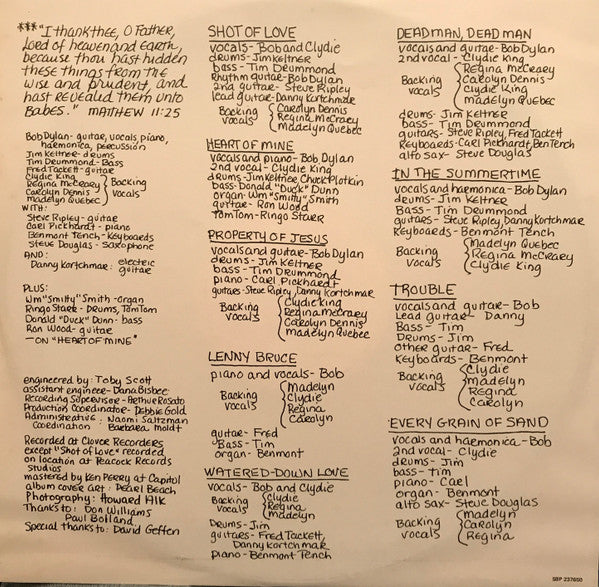 ***"I thank thee, O Father,
Lord of heaven and earth,
because thou hast hidden
these things from the
wise and prudent, and
hast revealed them unto
babes." MATTHEW 11:25
Bob Dylan- guitar, vocals, piano,
harmonica, percussion
Jim Keltner- drums
Tim Drummond- Bass
Fred Tackett- guitar
Clydie King
Regina McCrary
Carolyn Dennis
Madelyn Quebec
Backing
vocals
WITH:
Steve Ripley- guitar
Carl Pickhardt- piano
Benmont Tench- Keyboards
Steve Douglas- saxophone
AND:
Danny Kortchmar: electric
guitar
PLUS:
Wm "Smitty" Smith-organ
Ringo Starr- Drums, TomTom
Donald "Duck" Dunn- bass
Ron Wood- guitar
—ON "HEART OF MINE"
engineered by: Toby Scott
assistant engineer- Dana Bisbee
Recording Supervisor- Arthur Rosato
Production Coordinator- Debbie Gold
Administrative: Naomi Saltzman
Coordination Barbara Moldt
Recorded at Clover Recorders
except "Shot of Love" recorded
on location at Peacock Records
Studios
mastered by Ken Perry at Capitol
album cover art: Pearl Beach
Photography: Howard Alk
Thanks to: Don Williams
Paul Bolland
Special thanks to: David Geffen
SHOT OF LOVE
vocals- Bob and Clydie
drums- Jim Keltner
bass- Tim Drummond
Rhythm guitar- Bob Dylan
2nd guitar- Steve Ripley
lead guitar- Danny Kortchmar
Backing
vocals
Carolyn Dennis
Regina McCrary
Madelyn Quebec
HEART OF MINE
vocals and piano- Bob Dylan
2nd vocal- Clydie King
drums- Jim Keltner, Chuck Plotkin
bass- Donald "Duck" Dunn
organ- Wm "Smitty" Smith
guitar- Ron Wood
TomTom- Ringo Starr
PROPERTY OF JESUS
vocals and guitar- Bob Dylan
drums- Jim Keltner
bass- Tim Drummond
piano- Carl Pickhardt
guitars- Steve Ripley, Danny Kortchmar
Backing
vocals
Clydie King
Regina McCrary
Carolyn Dennis
Madelyn Quebec
LENNY BRUCE
piano and vocals- Bob
Backing
vocals
Madelyn
Clydie
Regina
Carolyn
guitar- Fred
Bass- Tim
organ- Benmont
WATERED-DOWN LOVE
vocals- Bob and Clydie
Backing
vocals
Clydie
Regina
Madelyn
Drums- Jim
guitars- Fred Tackett,
Danny Kortchmar
piano- Benmont Tench
DEAD MAN, DEAD MAN
vocals and guitar- Bob Dylan
2nd vocal- Clydie King
Backing
vocals
Regina McCrary
Carolyn Dennis
Clydie King
Madelyn Quebec
drums- Jim Keltner
bass- Tim Drummond
guitars- Steve Ripley, Fred Tackett
Keyboards- Carl Pickhardt, Ben Tench
alto sax- Steve Douglas
IN THE SUMMERTIME
vocals and harmonica- Bob Dylan
drums- Jim Keltner
Bass- Tim Drummond
guitars- Steve Ripley, Danny Kortchmar
Keyboards- Benmont Tench
Backing
vocals
Madelyn Quebec
Regina McCrary
Clydie King
TROUBLE
vocals and guitar- Bob
Lead guitar- Danny
Bass- Tim
Drums- Jim
other guitar- Fred
Keyboards- Benmont
Backing
vocals
Clydie
Madelyn
Regina
Carolyn
EVERY GRAIN OF SAND
vocals and harmonica- Bob
2nd vocal- Clydie
drums- Jim
bass- Tim
piano- Carl
organ- Benmont
alto sax- Steve Douglas
Backing
vocals
Madelyn
Carolyn
Regina
SBP 237650